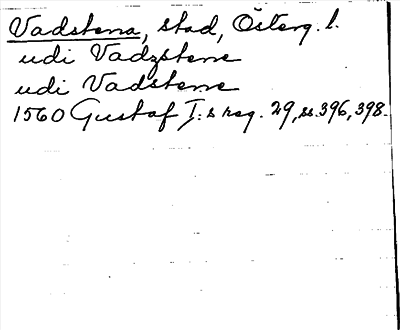 Vadstena, stad, Österg. l.
udi Vadzstene
udi Vadstene
1560 Gustaf I:s reg. 29, ss. 396, 398.